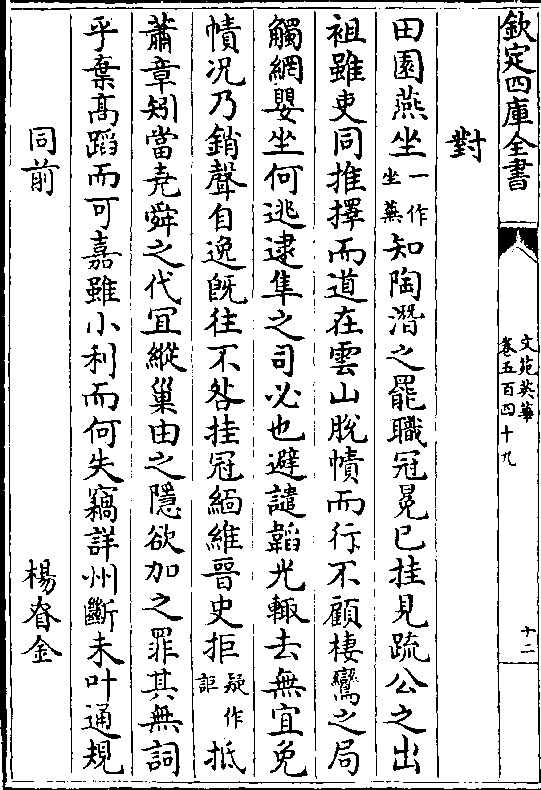 欽定四庫全書
文苑英華
卷五百四十九
十二
對
田園燕坐一作坐蕪知陶潛之罷職冠冕已挂見疏公之出
祖雖吏同推擇而道在雲山脫幘而行不顧棲鸞之局
觸網嬰坐何逃逮隼之司必也避譴韜光輙去無宜免
幘况乃銷聲自逸旣往不咎挂冠緬維晉史拒疑作詎抵
蕭章矧當堯舜之代冝縱巢由之隱欲加之罪其無詞
乎棄髙蹈而可嘉雖小利而何失竊詳州斷未叶通規
同前　楊眘金